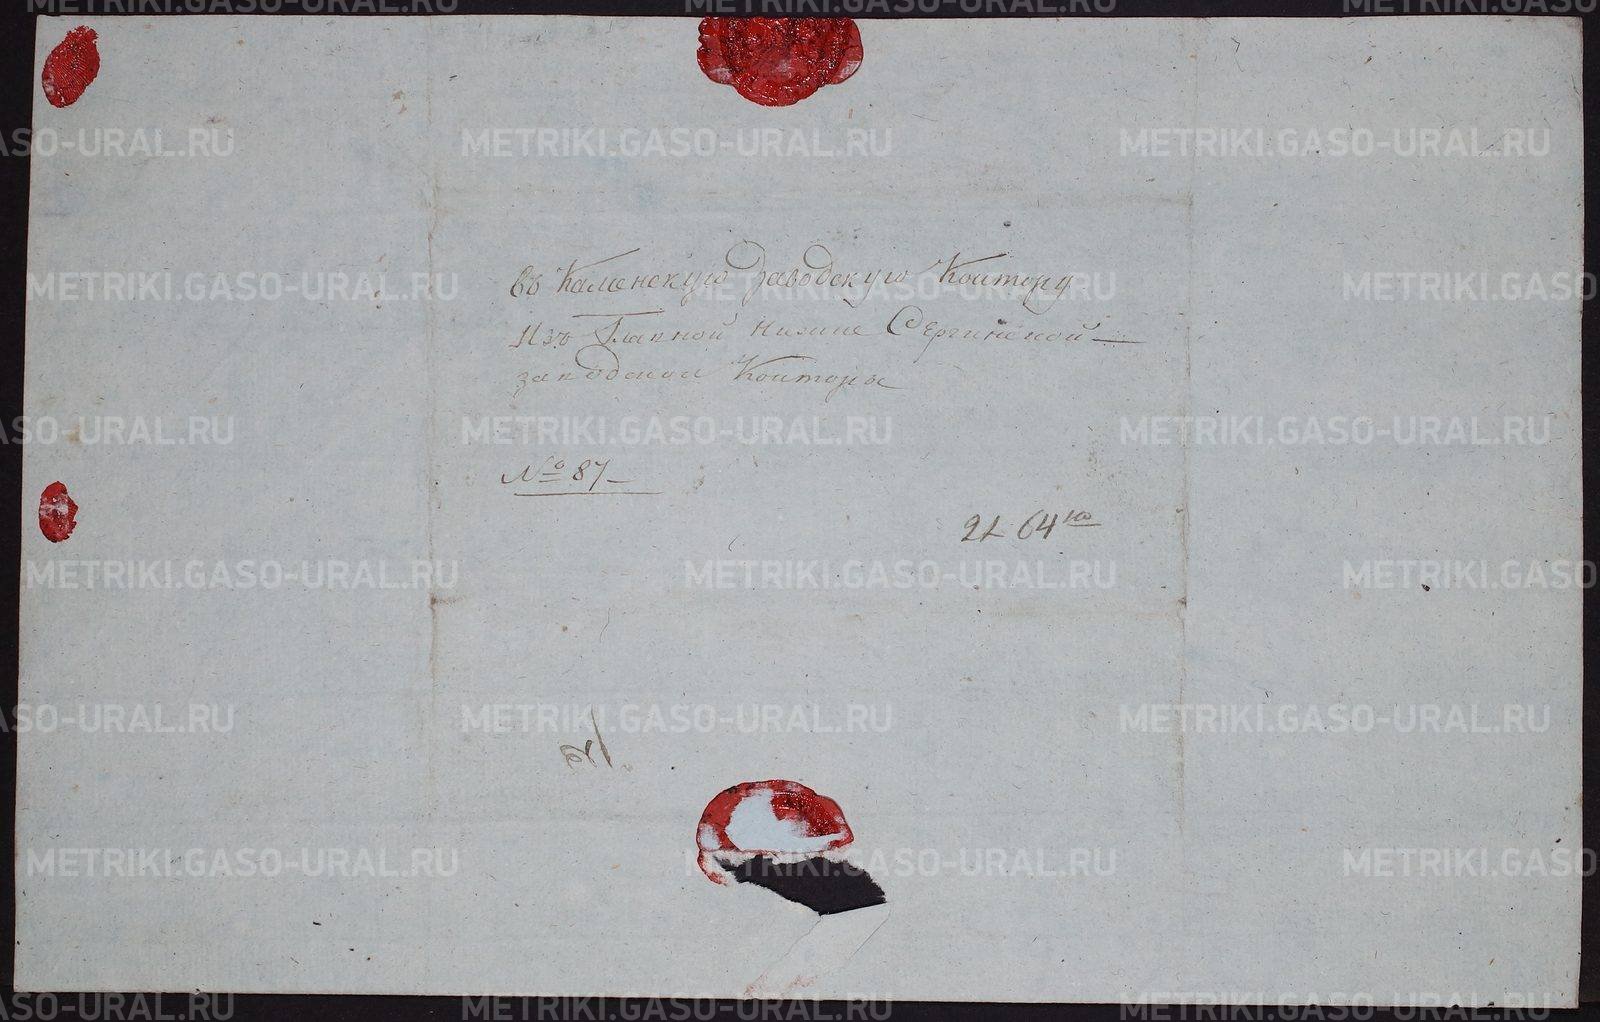 въ Каменскую Заводскую Контору
Изъ Главной Нижне Сергинской
заводской Конторы
№ 87
64
METRIKI.GASO-URAL.RU